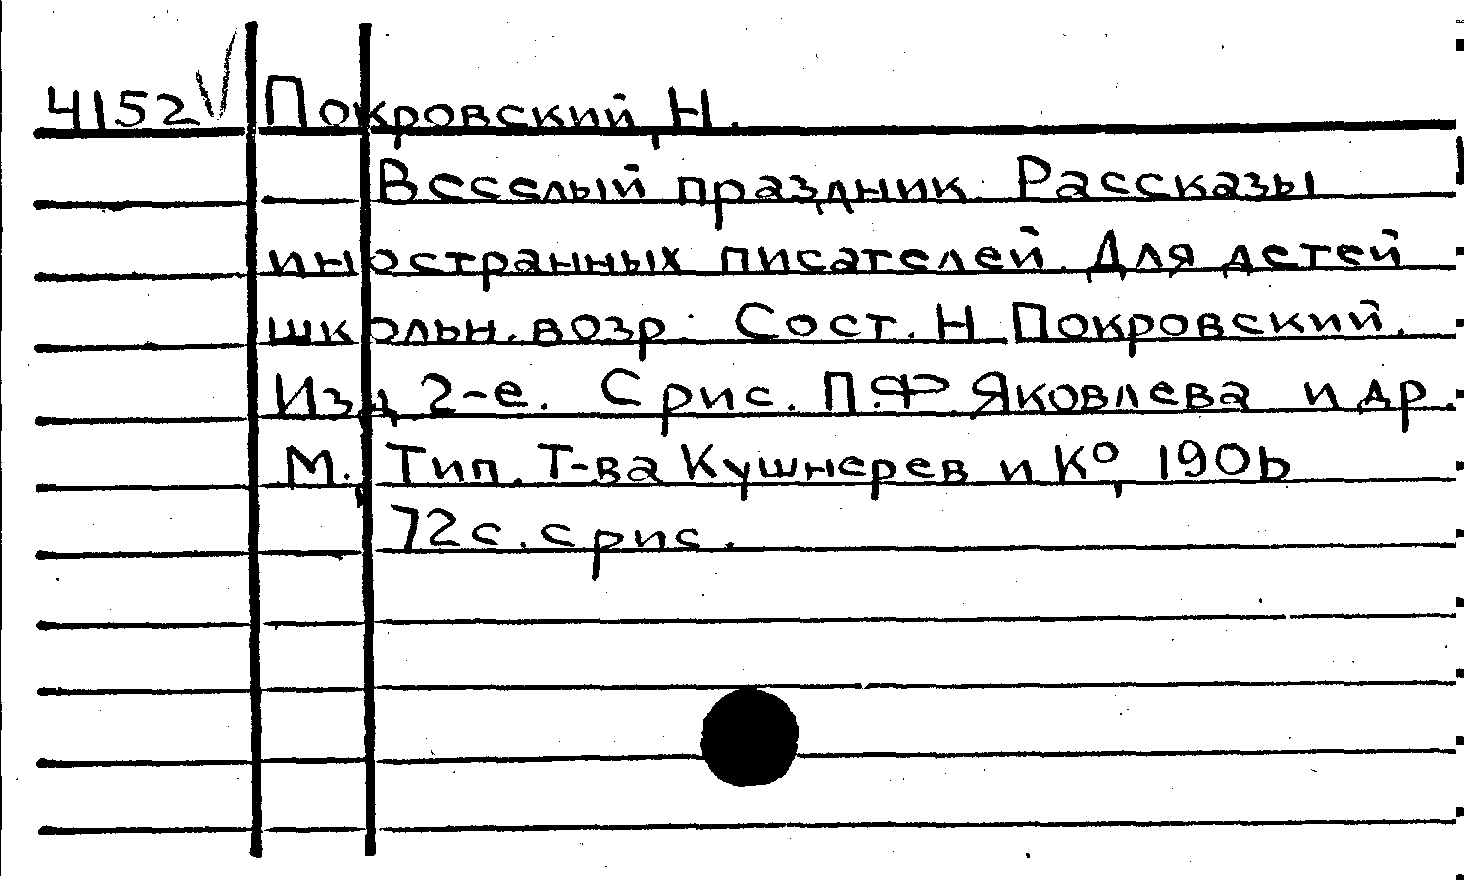 4152 Покровский, Н.
Веселый праздник. Рассказы
иностранных писателей. Для детей
школьн. возр. Сост. Н. Покровский.
Изд. 2-е. С рис. П.Ф. Яковлева и др.
М., Тип. Т-ва Кушнерев и К°, 1906
72 с. с рис.